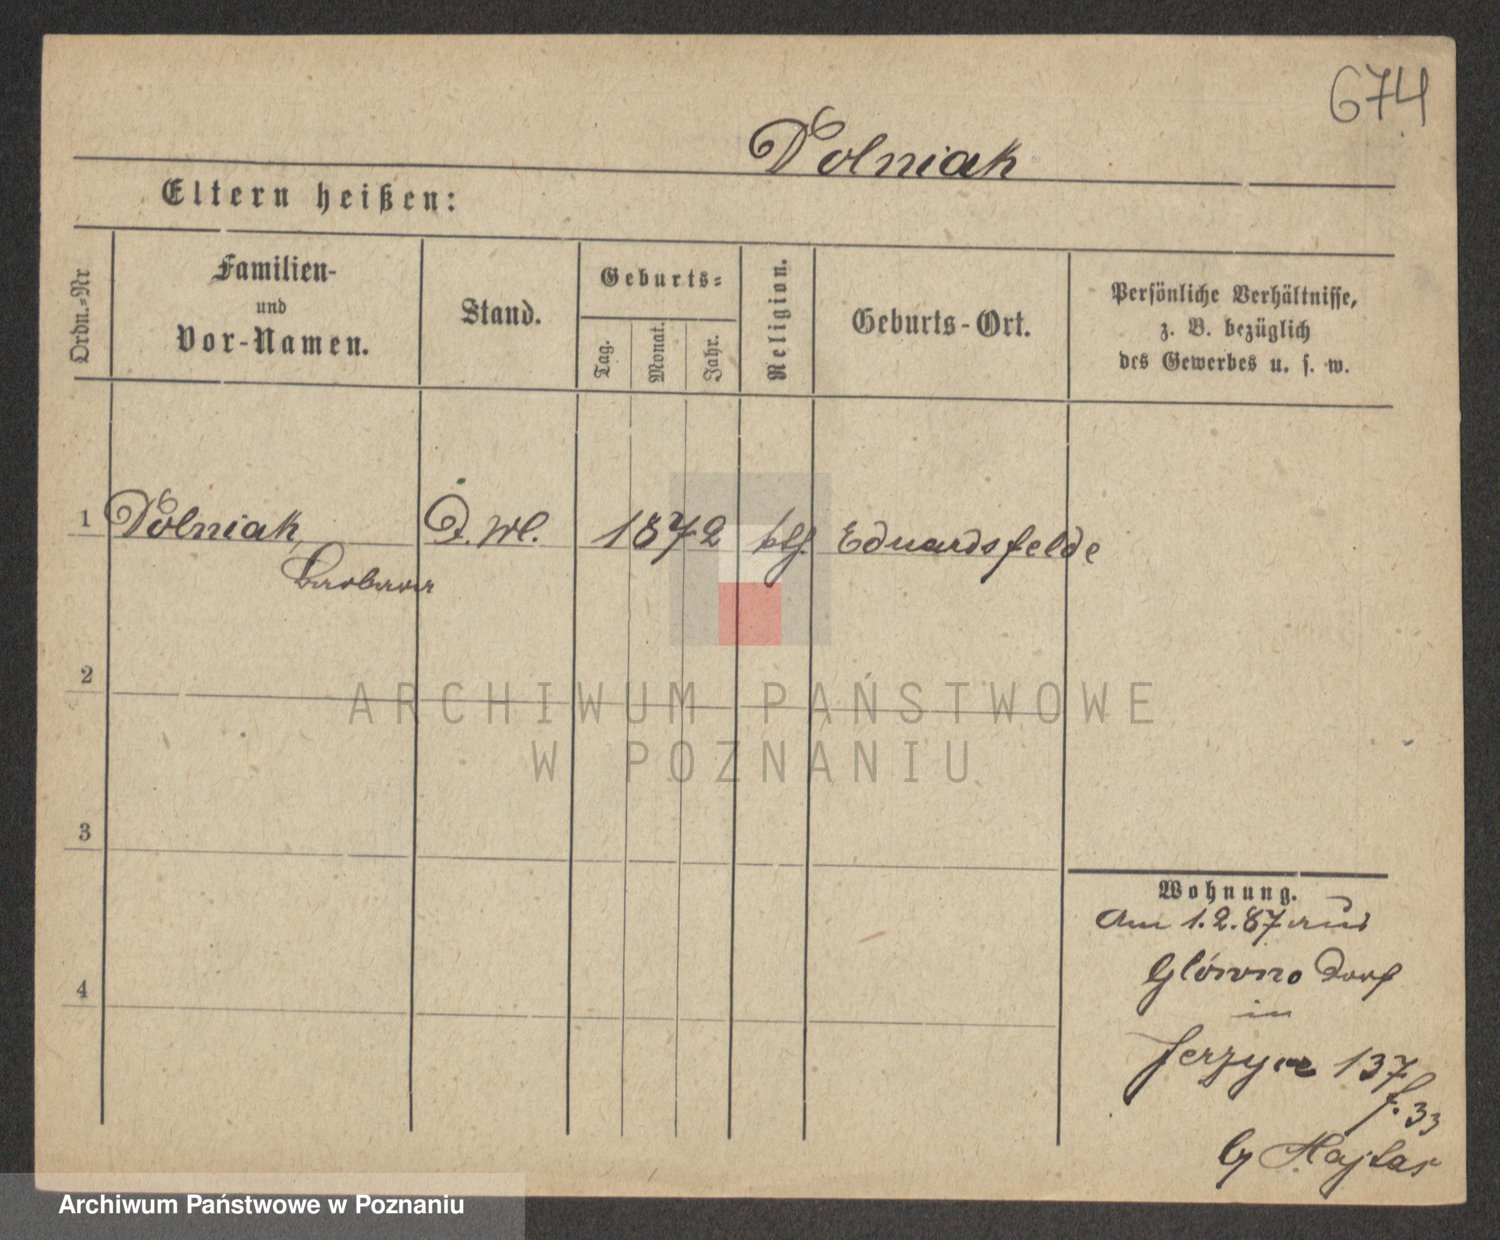 674
Dolniak
Eltern heißen:
Ordn.-Nr
Familien-
und
Vor-Namen.
Stand.
Geburts-
Tag.
Monat.
Jahr.
Religion.
Geburts-Ort.
Persönliche Verhältnisse,
z. B. bezüglich
des Gewerbes u. s. w.
1 Dolniak, 1872 Eduardsfelde
Barbara
2
3
4
Wohnung.
Am 1.2.87 aus
Glówno Dorf
in
137
f. 33
ARCHIWUM PAŃSTWOWE
W POZNANIU
Archiwum Państwowe w Poznaniu